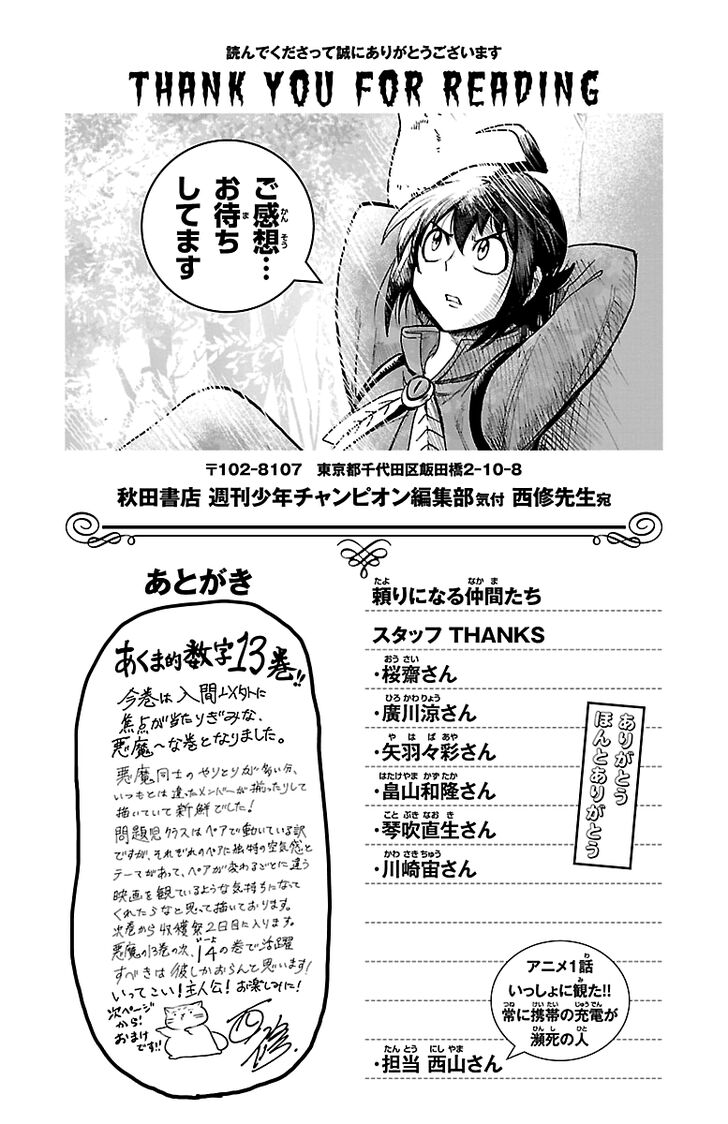 読んでくださって誠にありがとうございます
THANK YOU FOR READING
ご感想…
お待ち
してます
〒102-8107 東京都千代田区飯田橋2-10-8
秋田書店 週刊少年チャンピオン編集部気付 西修先生宛
あとがき
あくま的数字13巻!!
今巻は入間以外に
焦点が当たりぎみな、
悪魔〜な巻となりました。
悪魔同士のやりとりが多い分、
いつもとは違ったメンバーが揃ったりして
描いていて新鮮でした!
問題児クラスはペアで動いている訳
ですが、それぞれのペアに独特の空気感と
テーマがあって、ペアが変わるごとに違う
映画を観ているような気持ちになって
くれたらなと思って描いております。
次巻から収穫祭2日目に入ります。
悪魔の13巻の次、14の巻で活躍
すべきは彼しかおらんと思います!
いってこい!主人公!お楽しみに!
次ページ
から!
おまけ
です!!
西修
頼りになる仲間たち
スタッフ THANKS
・桜齋さん
・廣川涼さん
・矢羽々彩さん
・畠山和隆さん
・琴吹直生さん
・川崎宙さん
ありがとう
ほんとありがとう
アニメ1話
いっしょに観た!!
常に携帯の充電が
瀕死の人
・担当 西山さん